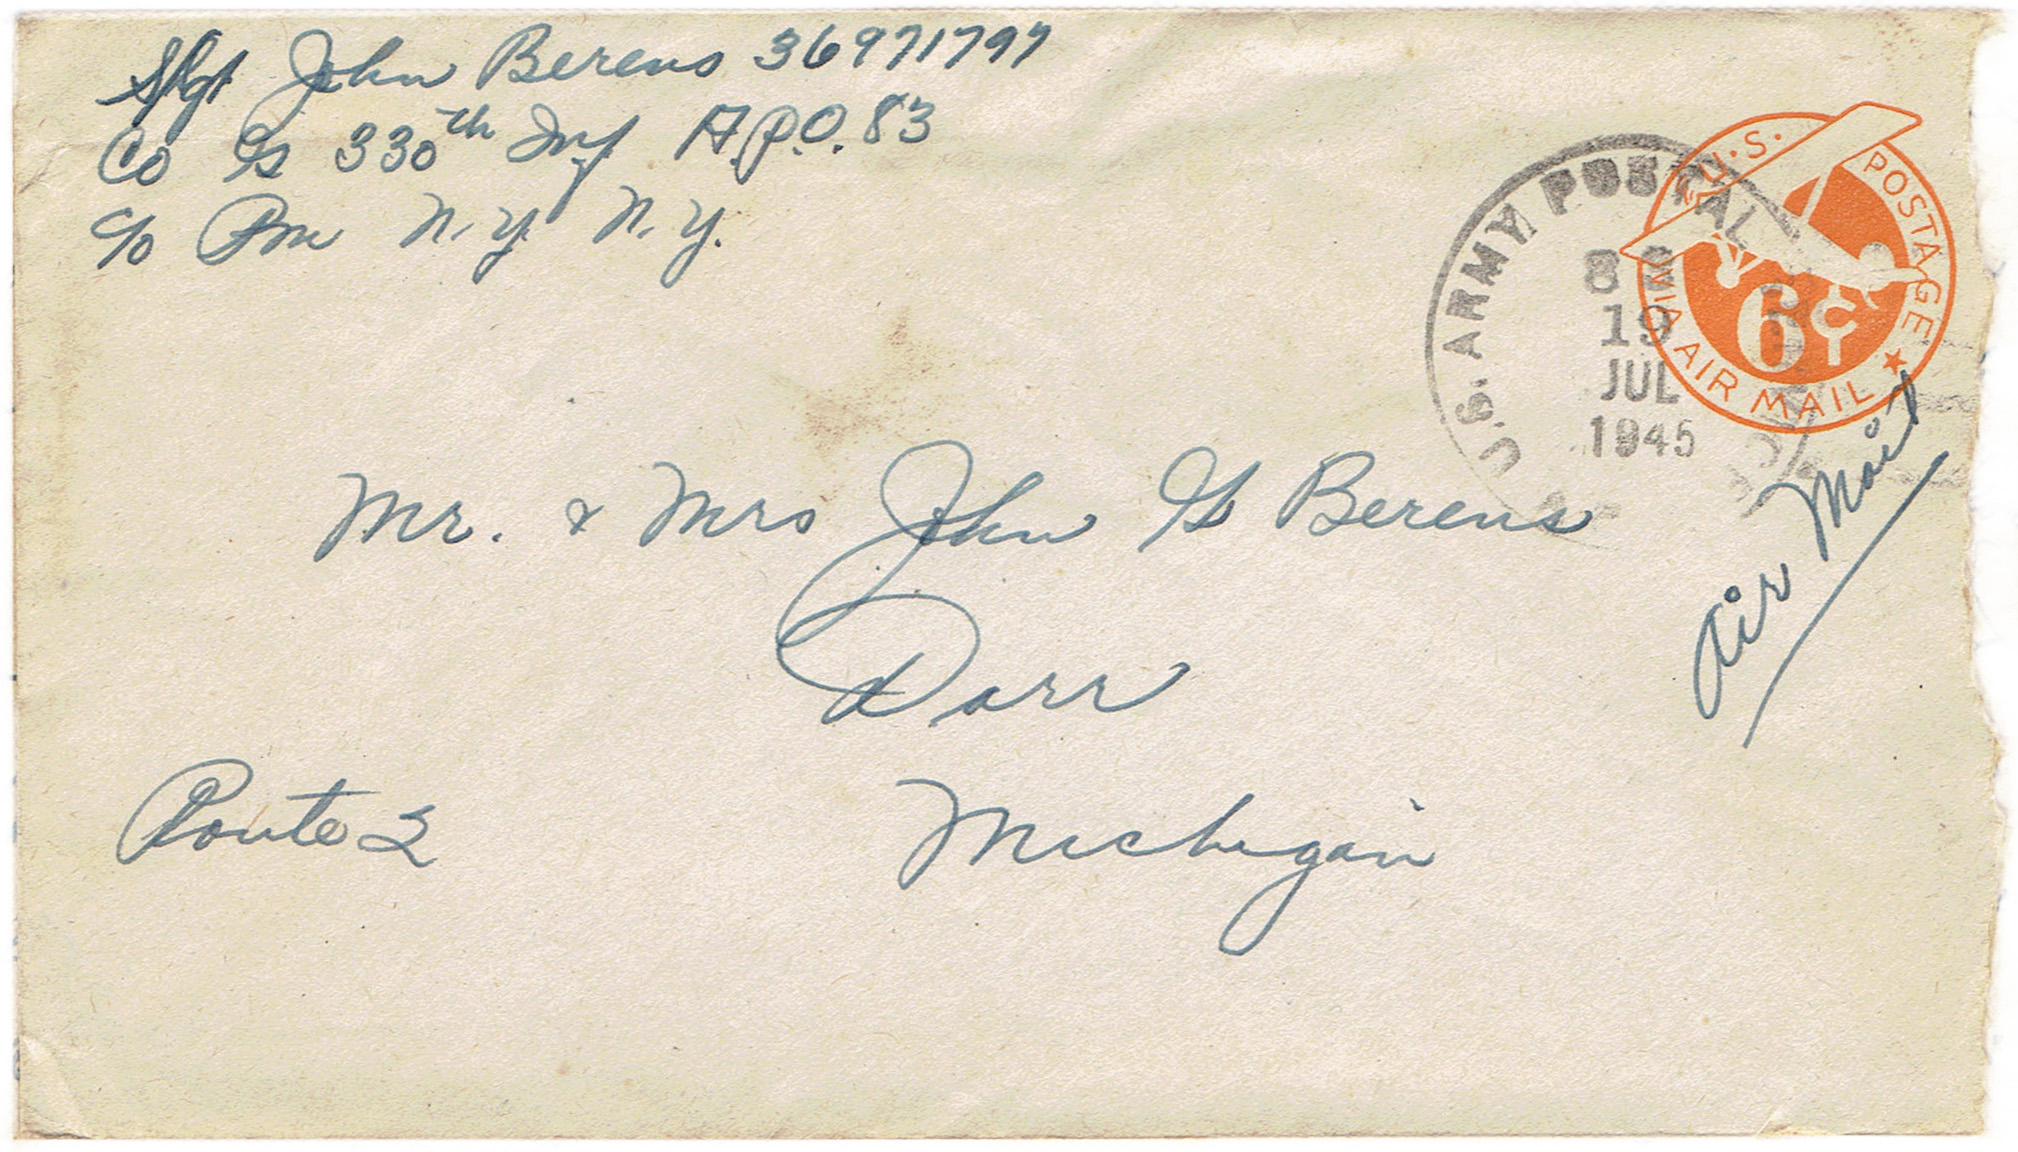 S/Sgt John Berens 36971797
Co G 330th Inf A.P.O. 83
c/o Pm N.Y. N.Y.
U.S. ARMY POSTAL
19
JUL
1945
U.S. POSTAGE
6¢
VIA AIR MAIL
Air Mail
Mr. & Mrs John G Berens
Dorr
Route 2
Michigan